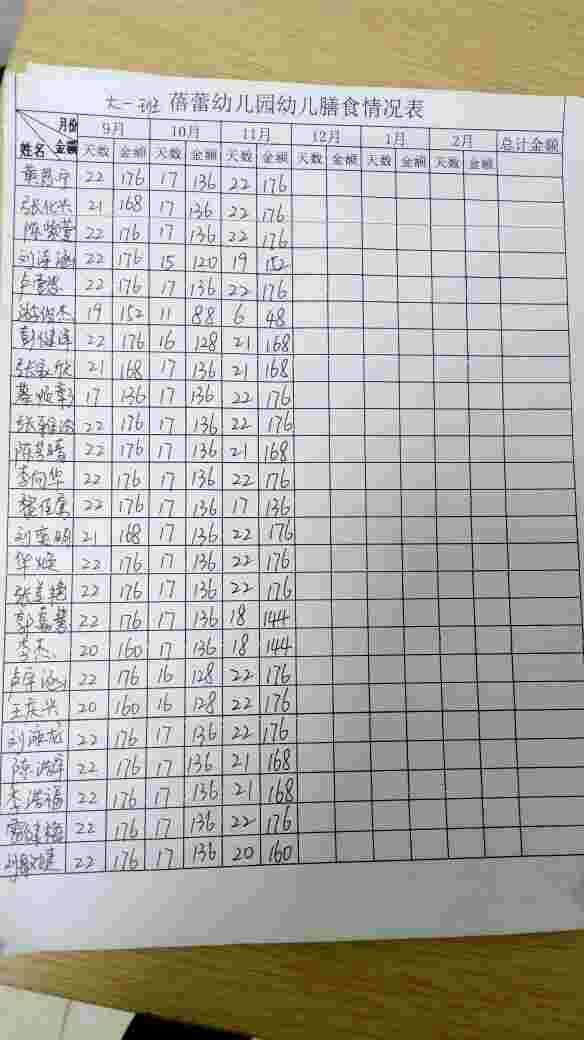 大一班 蓓蕾幼儿园幼儿膳食情况表
月份 9月 10月 11月 12月 1月 2月 总计金额
姓名 金额 天数 金额 天数 金额 天数 金额 天数 金额 天数 金额 天数 金额
22 176 17 136 22 176
张化兴 21 168 17 136 22 176
22 176 17 136 22 176
22 176 15 120 19 152
22 176 17 136 22 176
19 152 11 88 6 48
22 176 16 128 21 168
21 168 17 136 21 168
17 136 17 136 22 176
22 176 17 136 22 176
22 176 17 136 21 168
李向华 22 176 17 136 22 176
22 176 17 136 17 136
21 168 17 136 22 176
华焕 22 176 17 136 22 176
22 176 17 136 22 176
郭嘉慧 22 176 17 136 18 144
李杰 20 160 17 136 18 144
22 176 16 128 22 176
王庆兴 20 160 16 128 22 176
22 176 17 136 22 176
22 176 17 136 21 168
李浩福 22 176 17 136 21 168
22 176 17 136 22 176
22 176 17 136 20 160